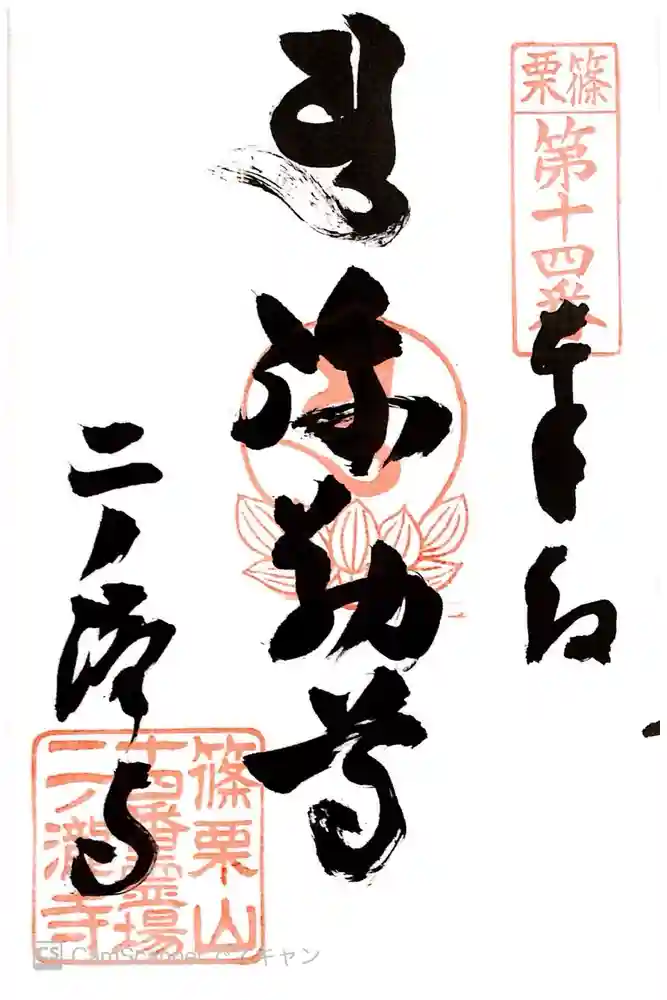 篠栗
第十四番
奉拝
弥勒尊
二ノ滝寺
篠栗山
十四番霊場
二ノ瀧寺
CS CamScanner でスキャン